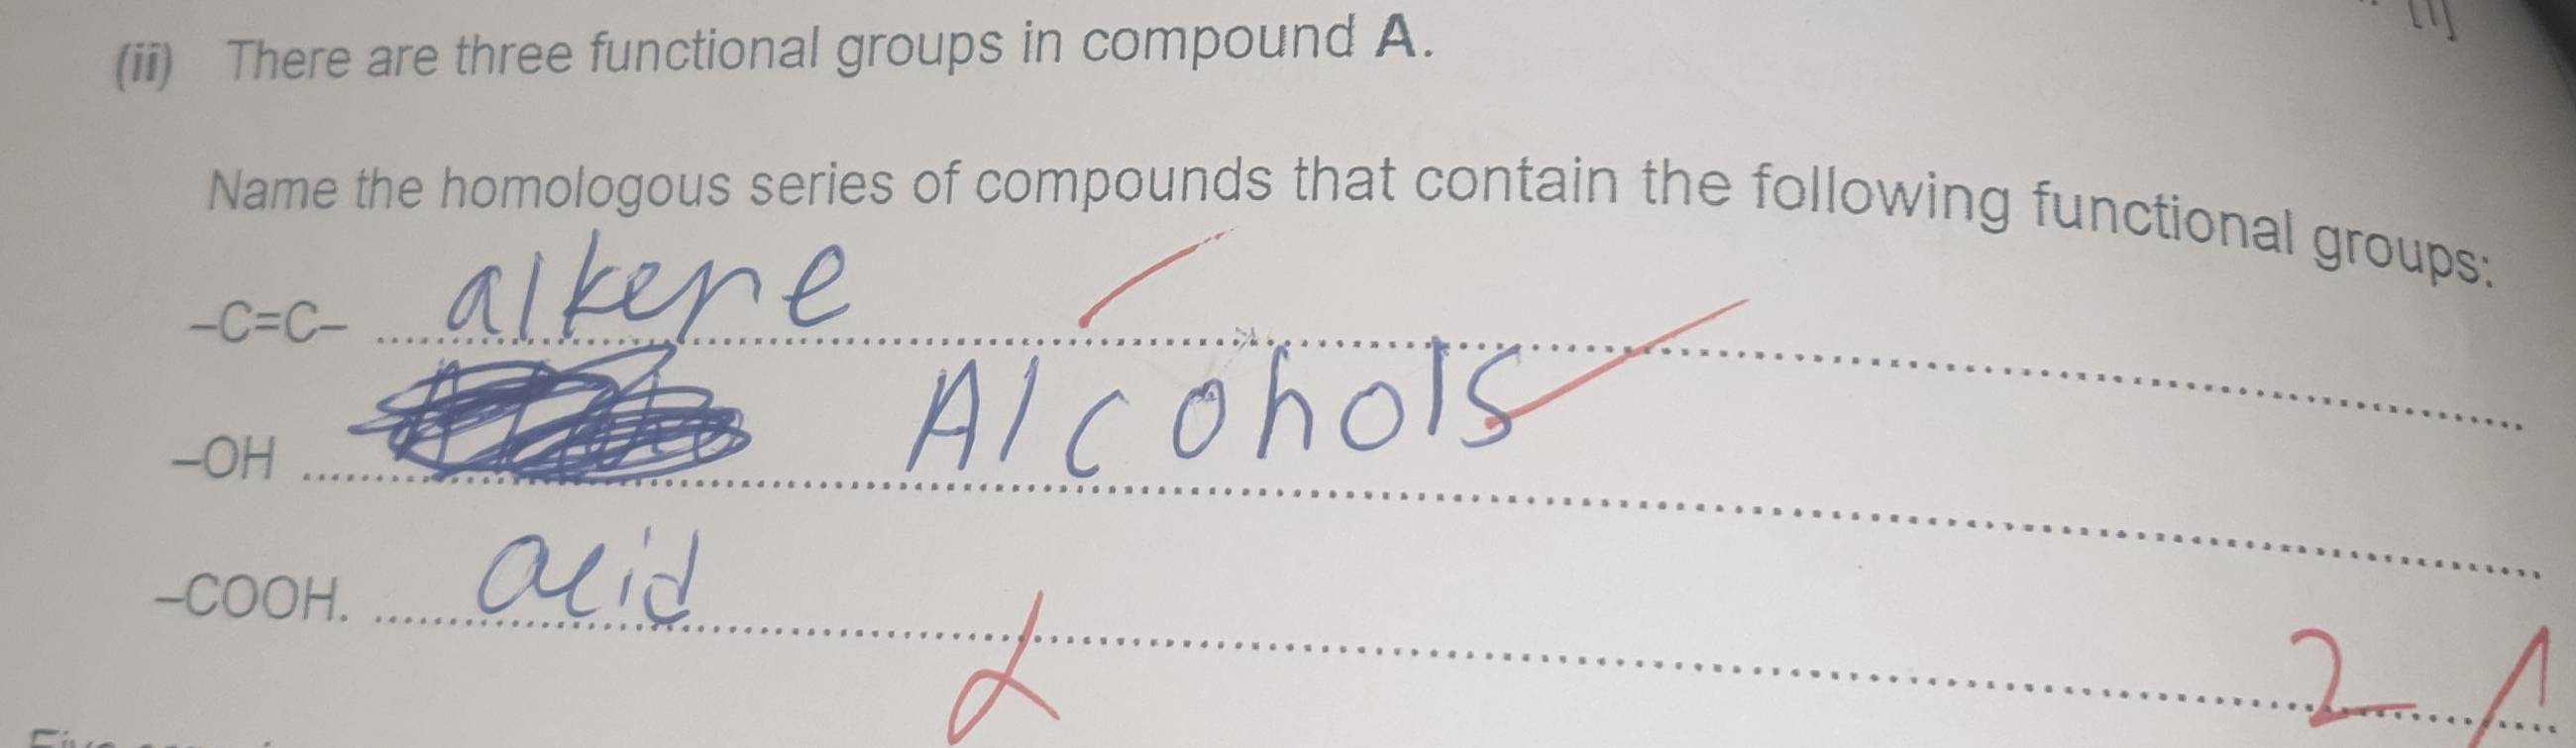 [1]
(ii) There are three functional groups in compound A.
Name the homologous series of compounds that contain the following functional groups:
–C=C– alkene
–OH Alcohols
–COOH. acid
2